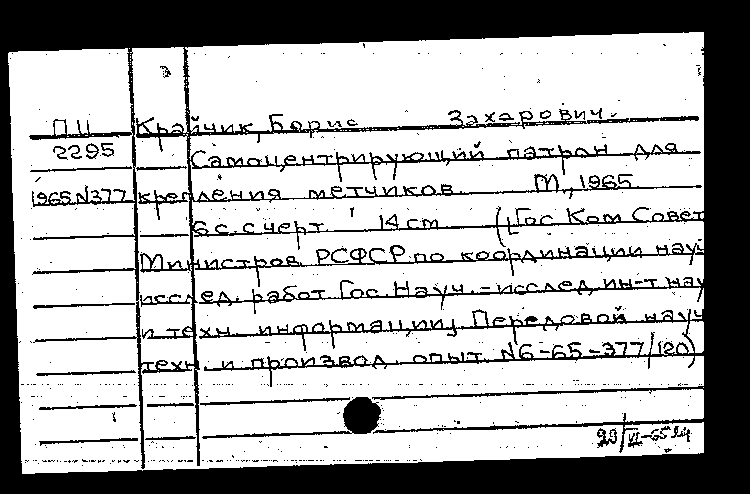 П II Крайчик, Борис Захарович.
2295 Самоцентрирующий патрон для
1965 N377 крепления метчиков М., 1965
6 с. с черт. 14 cm (Гос Ком Совет
Министров РСФСР по координации науч
исслед. работ Гос. Науч.-исслед. ин-т нау
и техн. информации, Передовой науч
техн. и производ. опыт. N6-65-377/120)